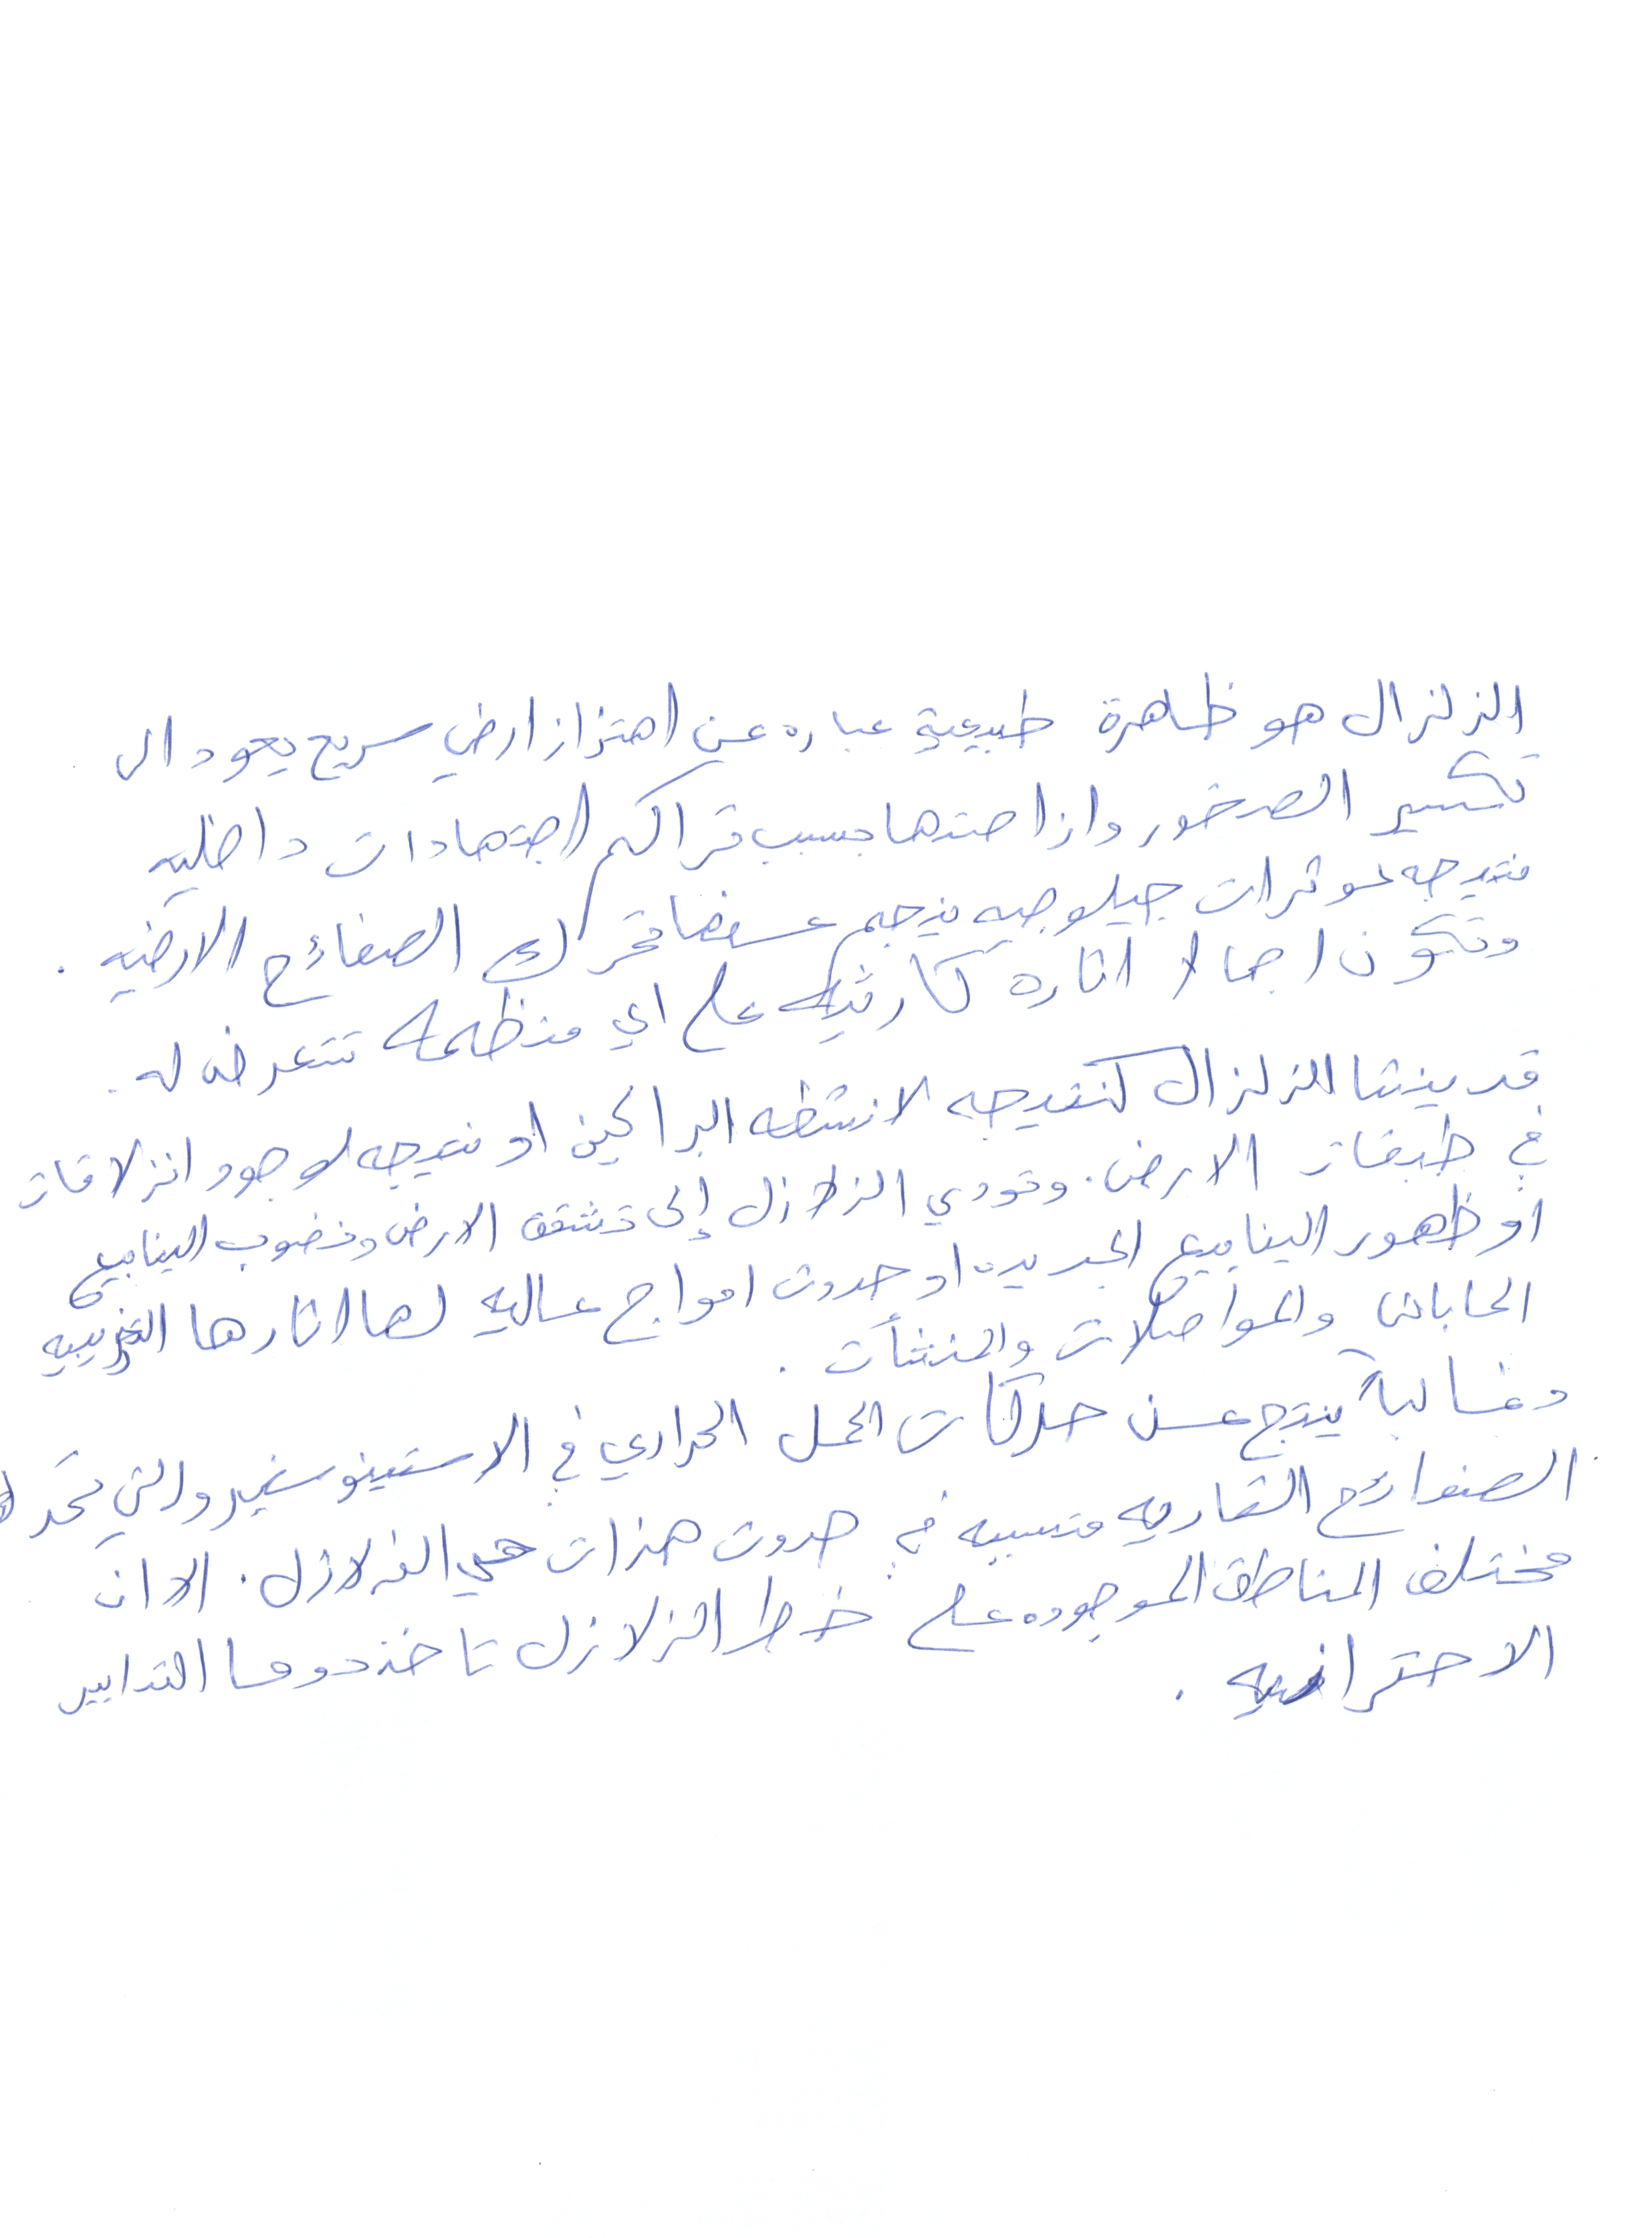 الزلزال هو ظاهرة طبيعية عباره عن اهتزاز ارضي سريع يعود الى
تكسير الصخور وازاحتها بسبب تراكم اجتهادات داخليه
نتيجه لموثرات جيلوجيه ينجم عنها تحرك الصفائح الارضيه .
وتكون اجمالا اثاره كارثيه على اي منظمه تتعرض له .
قد ينشا الزلزال كنتيجه لانشطه البراكين او نتيجه لوجود انزلاقات
في طبقات الارض . وتودي الزلازل إلى تشقق الارض ونضوب الينابيع
او ظهور الينابيع الجديده او حدوث امواج عاليه لها اثارها التخريبيه
والمواصلات والمنشأت .
وغالباً ينتج عن حركات الحمل الحراري في الاستينوسفير والتي تحرك
الصفائح القاريه متسببه في حدوث هزات هي الزلازل . الا ان
مختلف المناطق الموجوده على خط الزلازل تاخذ دوما التدابير
الاحترازيه .